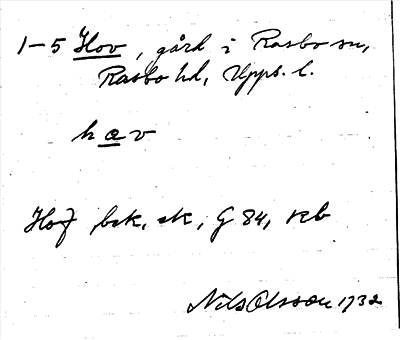 1-5 Hov, gård i Rasbo sn,
Rasbo hd, Upps. l.
hav
Hof bsk, sk, G 84, rkb
Nils Olsson 1732